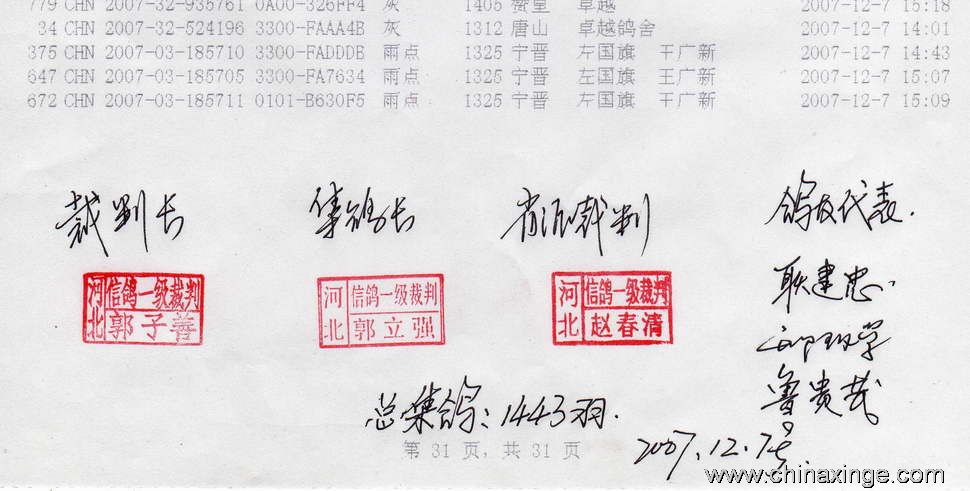 779 CHN 2007-32-935761 0A00-326FF4 灰 1405 卓越 2007-12-7 15:18
34 CHN 2007-32-524196 3300-FAAA4B 灰 1312 唐山 卓越鸽舍 2007-12-7 14:01
375 CHN 2007-03-185710 3300-FADDDB 雨点 1325 宁晋 左国旗 王广新 2007-12-7 14:43
647 CHN 2007-03-185705 3300-FA7634 雨点 1325 宁晋 左国旗 王广新 2007-12-7 15:07
672 CHN 2007-03-185711 0101-B630F5 雨点 1325 宁晋 左国旗 王广新 2007-12-7 15:09
裁判长 集鸽长 省派裁判 鸽友代表.
河北 信鸽一级裁判 郭子善
河北 信鸽一级裁判 郭立强
河北 信鸽一级裁判 赵春清
耿建忠
鲁贵哉
总集鸽: 1443羽.
第 31 页, 共 31 页
2007.12.7号
www.chinaxinge.com